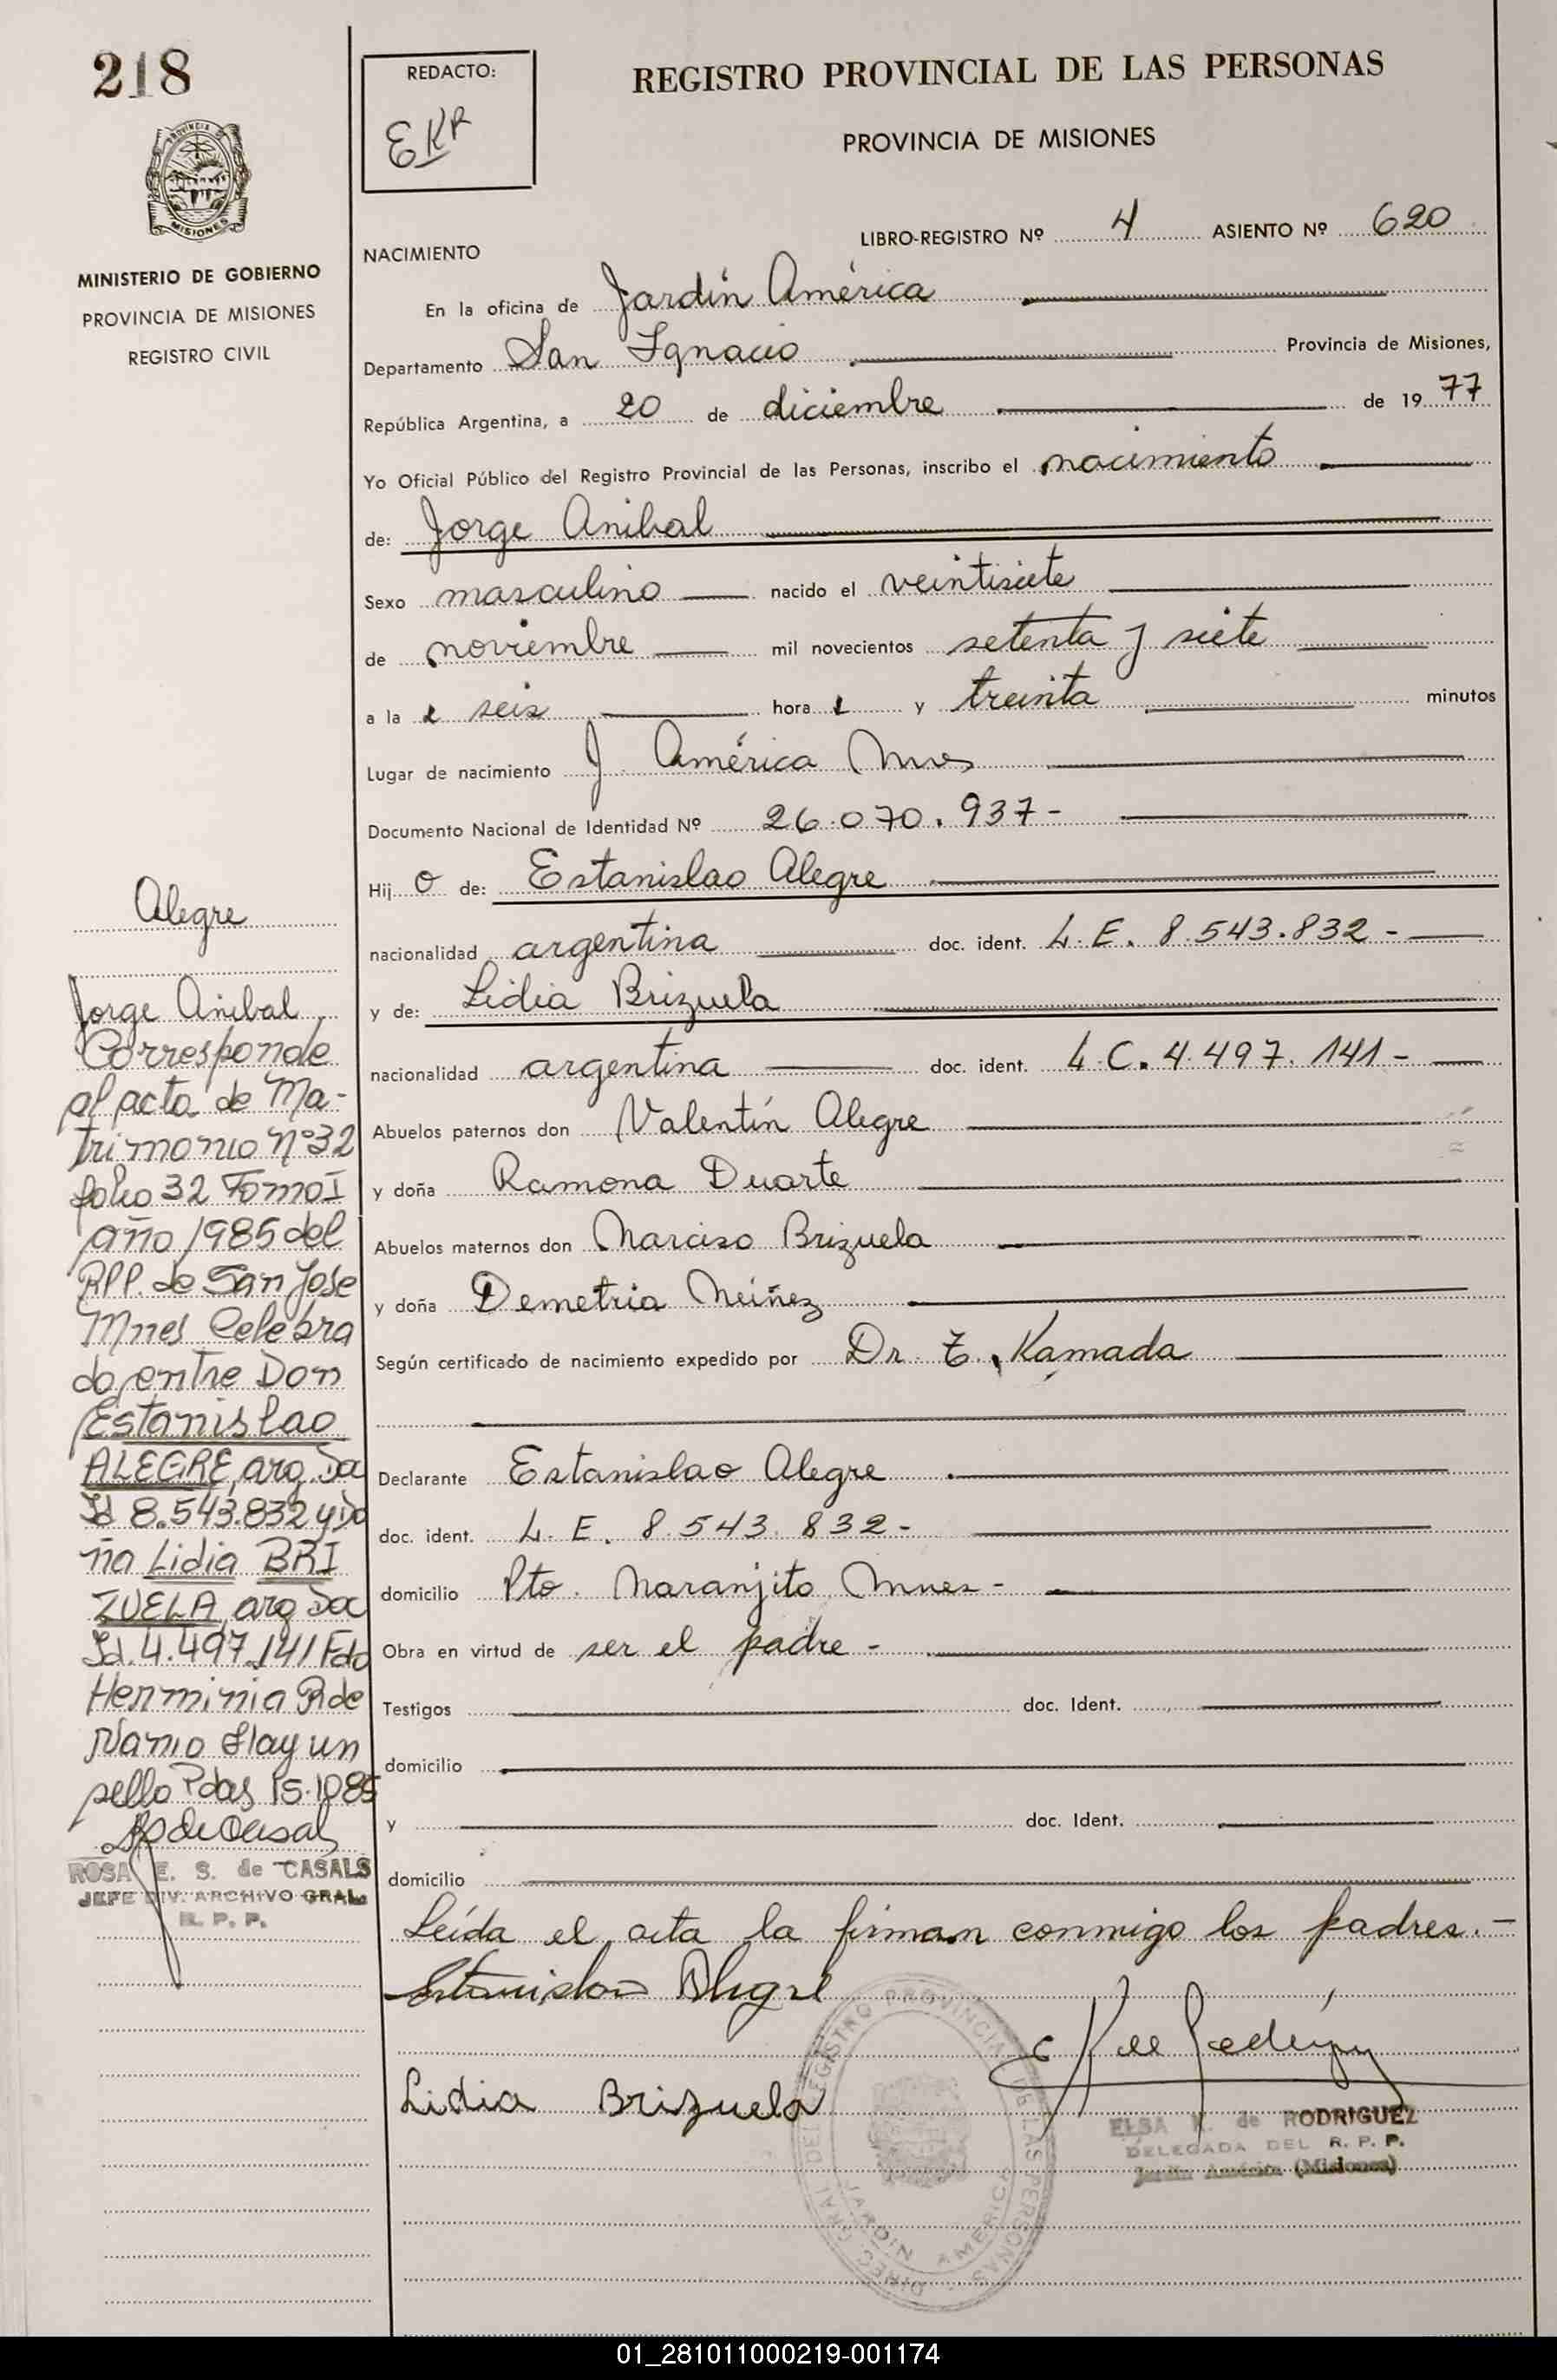 218
PROVINCIA DE
MISIONES
MINISTERIO DE GOBIERNO
PROVINCIA DE MISIONES
REGISTRO CIVIL
REDACTO:
EKR
REGISTRO PROVINCIAL DE LAS PERSONAS
PROVINCIA DE MISIONES
LIBRO-REGISTRO Nº 4 ASIENTO Nº 620
NACIMIENTO
En la oficina de Jardín América
Departamento San Ignacio Provincia de Misiones,
República Argentina, a 20 de diciembre de 1977
Yo Oficial Público del Registro Provincial de las Personas, inscribo el nacimiento
de: Jorge Anibal
Sexo masculino nacido el veintisiete
de noviembre mil novecientos setenta y siete
a la s seis hora s y treinta minutos
Lugar de nacimiento J. América Mnes
Documento Nacional de Identidad Nº 26.070.937-
Hij o de: Estanislao Alegre
nacionalidad argentina doc. ident. L.E. 8.543.832-
y de: Lidia Brizuela
nacionalidad argentina doc. ident. L.C. 4.497.141-
Abuelos paternos don Valentín Alegre
y doña Ramona Duarte
Abuelos maternos don Narciso Brizuela
y doña Demetria Núñez
Según certificado de nacimiento expedido por Dr. T. Kamada
Declarante Estanislao Alegre
doc. ident. L.E. 8.543.832-
domicilio Pto. Naranjito Mnes-
Obra en virtud de ser el padre-
Testigos doc. Ident.
domicilio
y doc. Ident.
domicilio
Leída el acta la firman conmigo los padres.-
Estanislao Alegre
Lidia Brizuela
ELSA K. de RODRIGUEZ
DELEGADA DEL R. P. P.
Jardín América (Misiones)
DIREC. GRAL. DEL REGISTRO PROVINCIAL DE LAS PERSONAS
JARDIN AMERICA
Alegre
Jorge Anibal
Corresponde
al acta de Ma-
trimonio Nº32
folio 32 Tomo I
año 1985 del
RPP. de San Jose
Mnes Celebra
do entre Don
Estanislao
ALEGRE, arg. Doc
Id 8.543.832 y Do
ña Lidia BRI
ZUELA, arg Doc
Id. 4.497.141 Fdo
Herminia R de
Hay un
sello Pdas
ROSA E. S. de CASALS
JEFE DIV. ARCHIVO GRAL.
R. P. P.
01_281011000219-001174